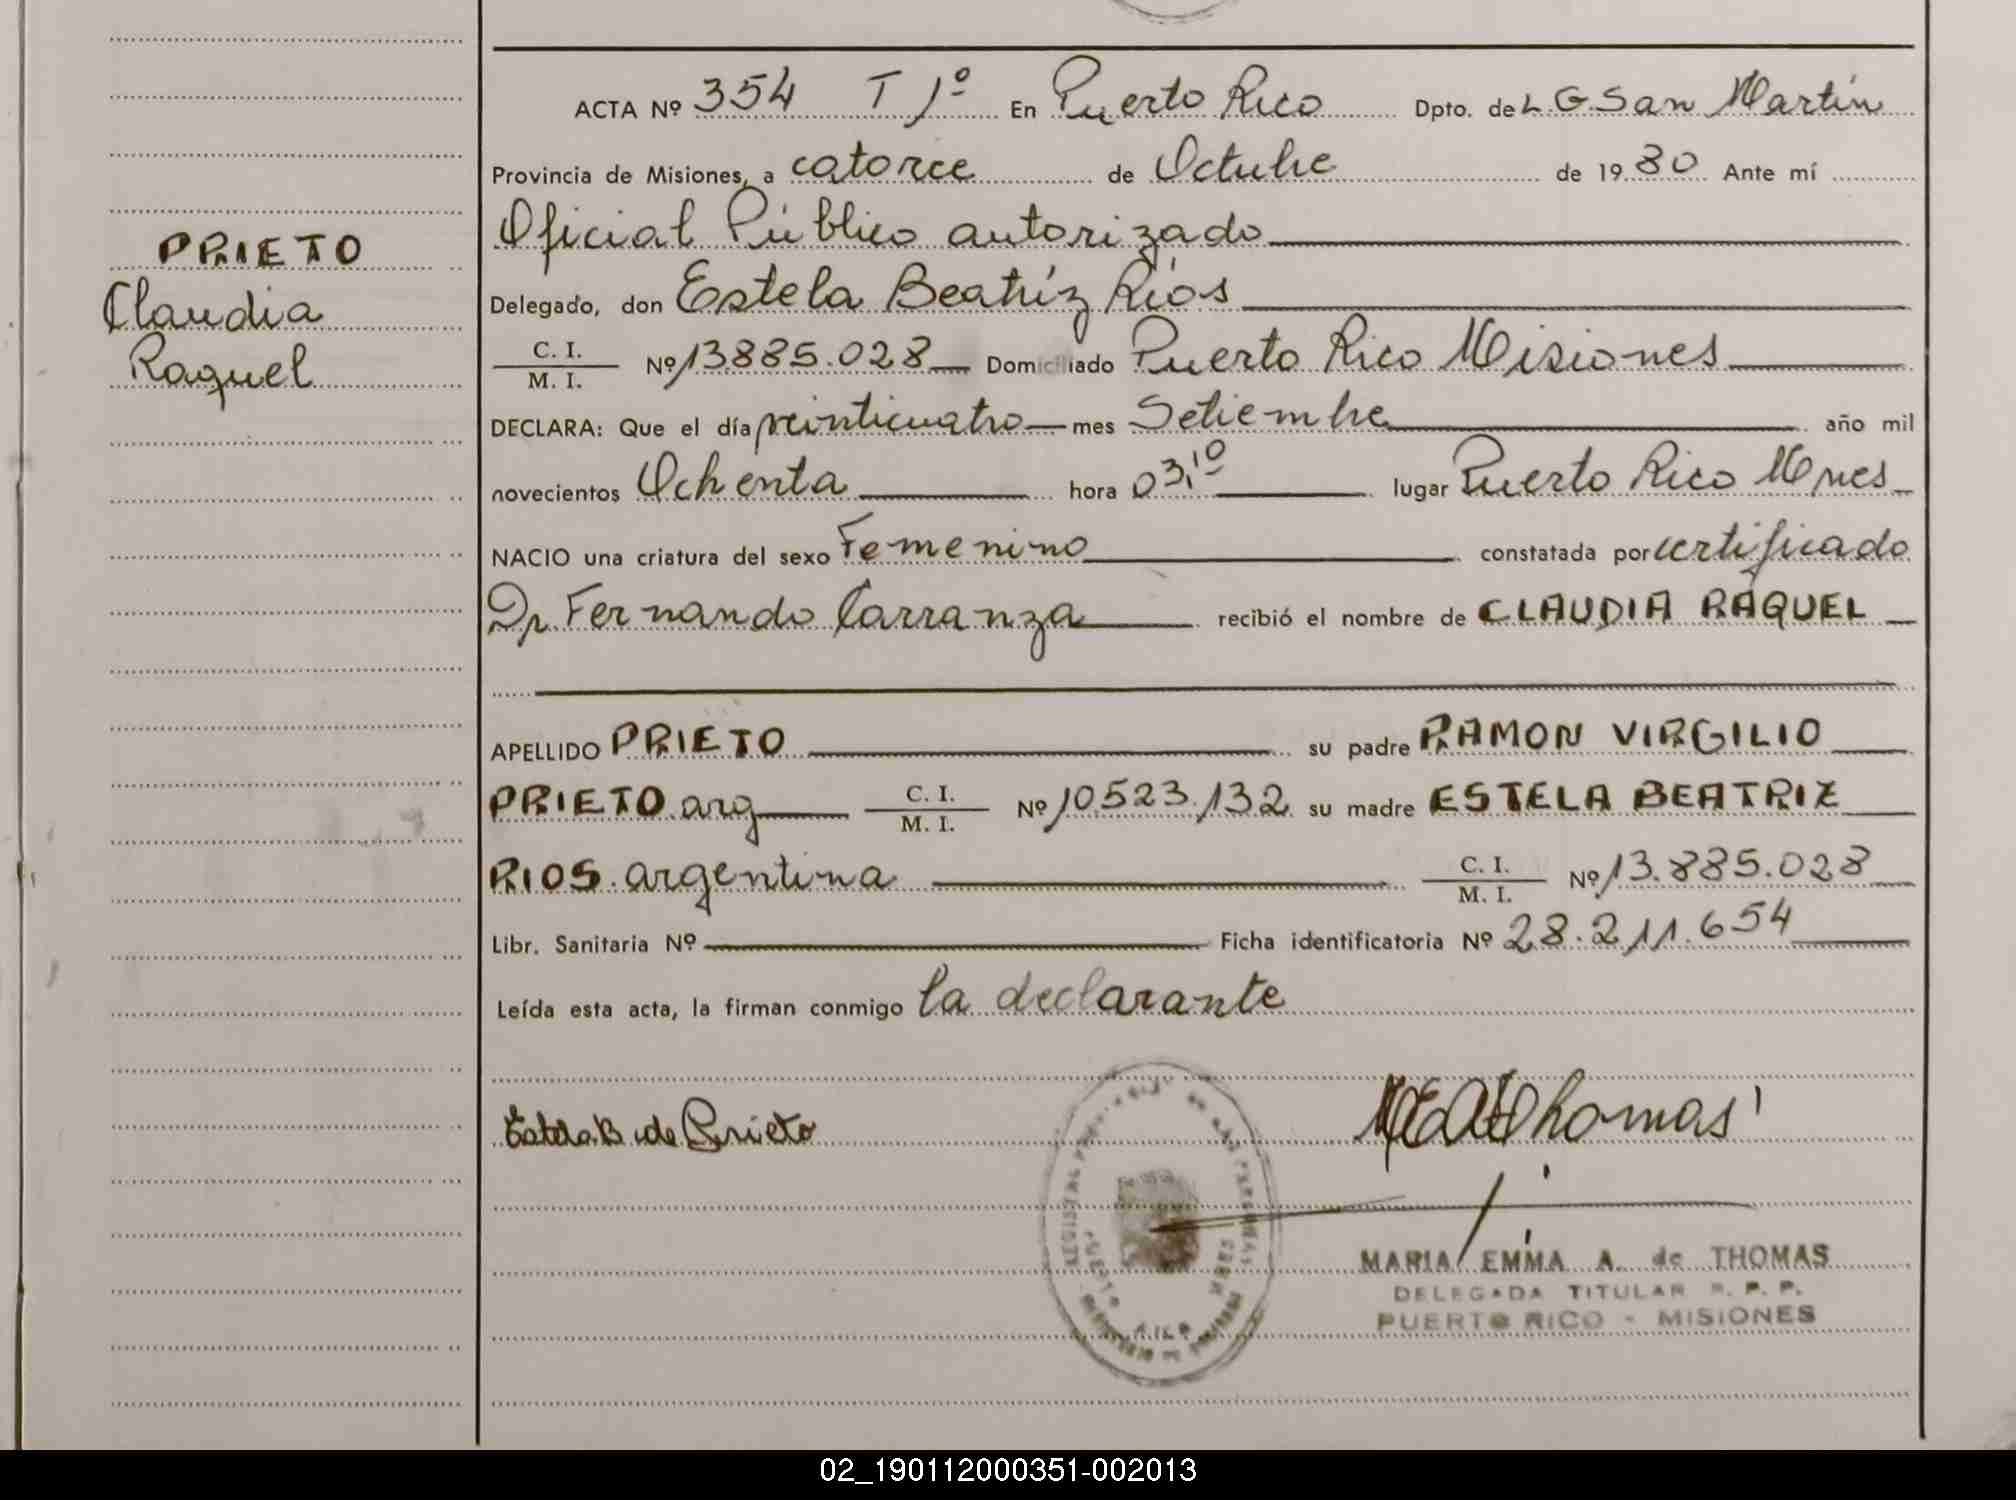 ACTA Nº 354 T 1º En Puerto Rico Dpto. de L. G. San Martín
Provincia de Misiones, a catorce de Octubre de 19 80 Ante mí
Oficial Público autorizado
PRIETO
Delegado, don Estela Beatríz Ríos
Claudia
C. I. / M. I. Nº 13.885.028 Domiciliado Puerto Rico Misiones
Raquel
DECLARA: Que el día veinticuatro mes Setiembre año mil
novecientos Ochenta hora 03,10 lugar Puerto Rico Mnes
NACIO una criatura del sexo Femenino constatada por certificado
Dr. Fernando Carranza recibió el nombre de CLAUDIA RAQUEL
APELLIDO PRIETO su padre RAMON VIRGILIO
PRIETO arg C. I. / M. I. Nº 10.523.132 su madre ESTELA BEATRIZ
RIOS. argentina C. I. / M. I. Nº 13.885.028
Libr. Sanitaria Nº Ficha identificatoria Nº 28.211.654
Leída esta acta, la firman conmigo la declarante
Estela B. de Prieto
MEAdeThomas
MARIA EMMA A. de THOMAS
DELEGADA TITULAR R. P. P.
PUERTO RICO - MISIONES
02_190112000351-002013